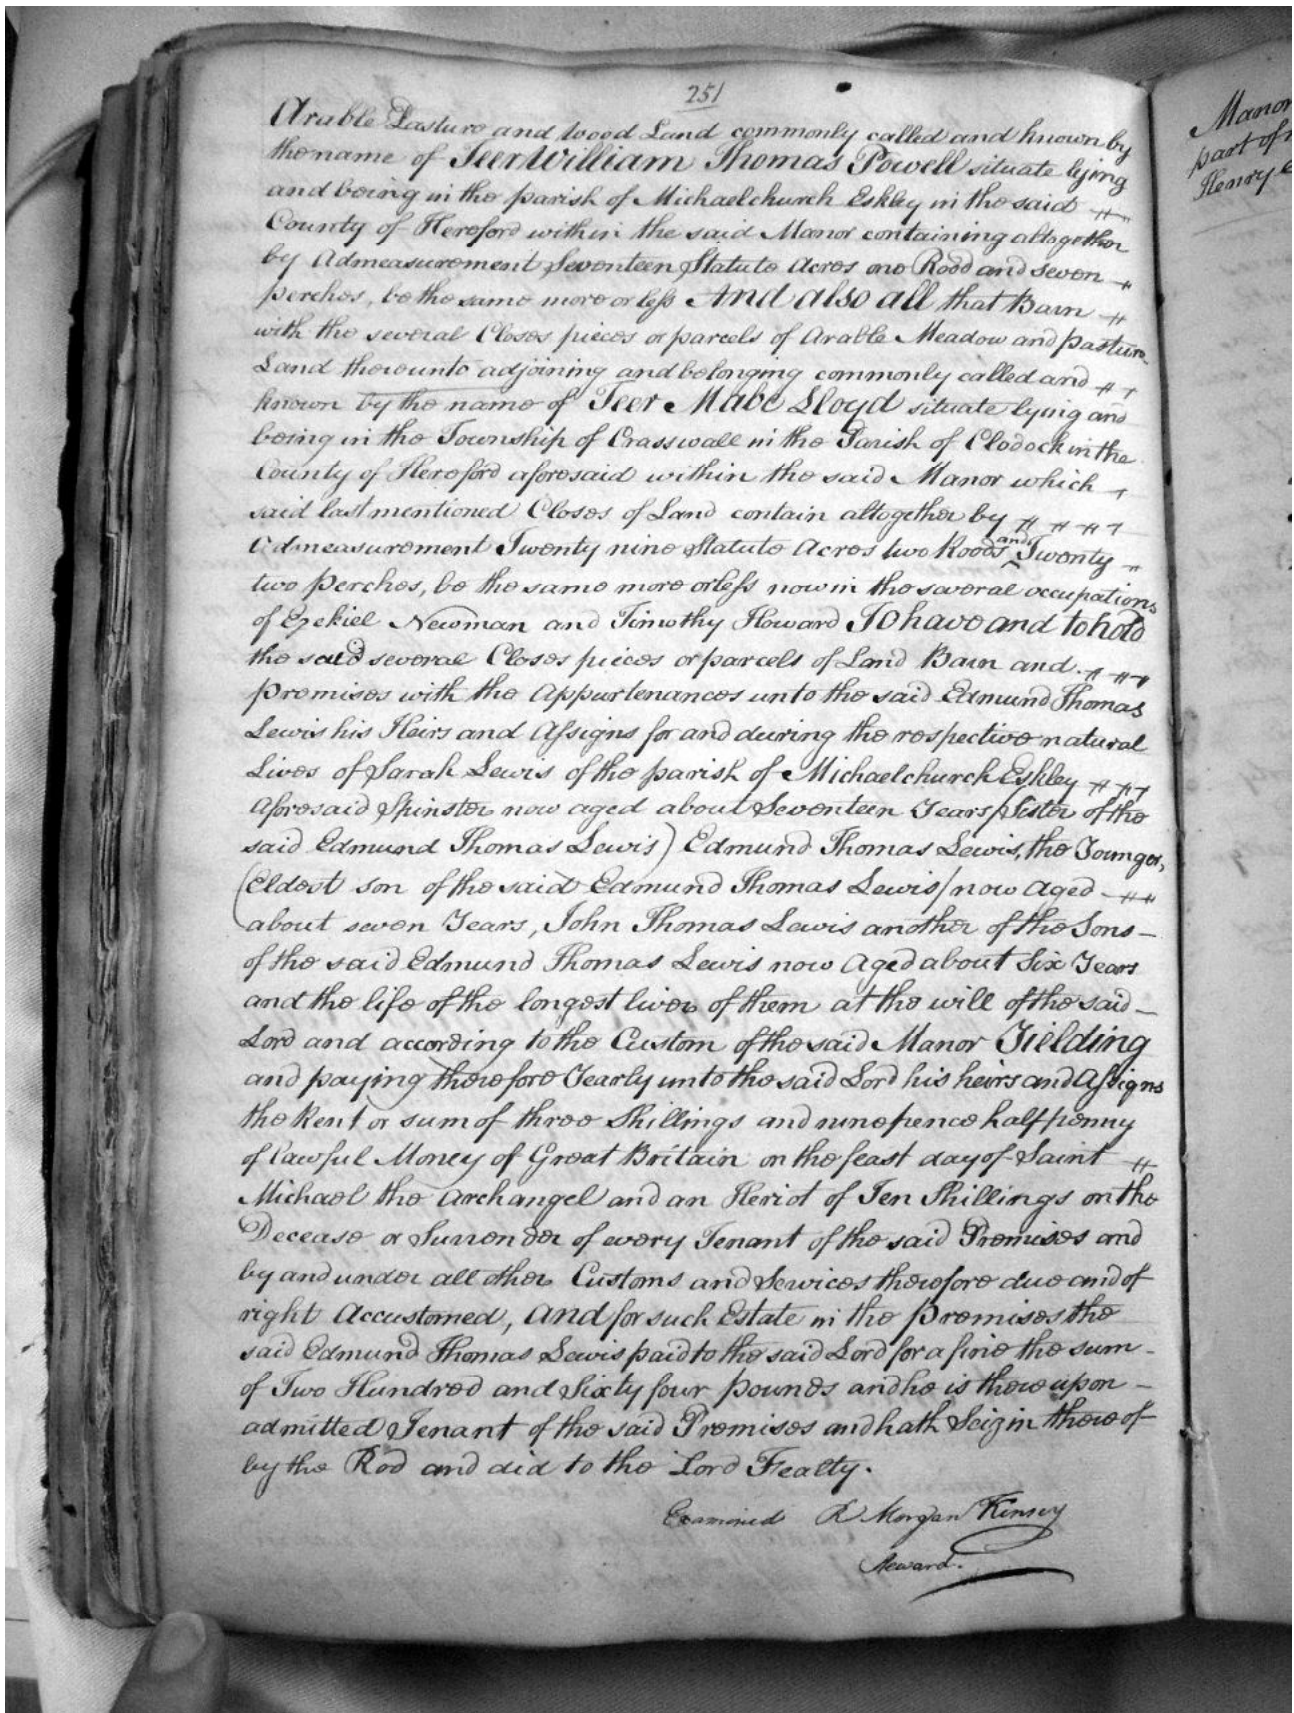 251
Arable Pasture and Wood Land commonly called and known by
the name of Teer William Thomas Powell situate lying
and being in the parish of Michaelchurch Eskley in the said
County of Hereford within the said Manor containing altogether
by Admeasurement Seventeen Statute Acres one Rood and seven
perches, be the same more or less And also all that Barn
with the several Closes pieces or parcels of Arable Meadow and pasture
Land thereunto adjoining and belonging commonly called and
known by the name of Teer Mabe Lloyd situate lying and
being in the Township of Crasswall in the Parish of Clodock in the
County of Hereford aforesaid within the said Manor which
said last mentioned Closes of Land contain altogether by
Admeasurement Twenty nine Statute Acres two Roods and Twenty
two perches, be the same more or less now in the several occupations
of Ezekiel Newman and Timothy Howard To have and to hold
the said several Closes pieces or parcels of Land Barn and
premises with the Appurtenances unto the said Edmund Thomas
Lewis his Heirs and Assigns for and during the respective natural
Lives of Sarah Lewis of the parish of Michaelchurch Eskley
Aforesaid Spinster now aged about Seventeen Years (Sister of the
said Edmund Thomas Lewis) Edmund Thomas Lewis, the Younger,
(Eldest son of the said Edmund Thomas Lewis) now aged
about seven Years, John Thomas Lewis another of the Sons
of the said Edmund Thomas Lewis now Aged about Six Years
and the life of the longest liver of them at the will of the said
Lord and according to the Custom of the said Manor Yielding
and paying therefore Yearly unto the said Lord his heirs and Assigns
the Rent or sum of three Shillings and ninepence halfpenny
of Lawful Money of Great Britain on the feast day of Saint
Michael the Archangel and an Heriot of Ten Shillings on the
Decease or Surrender of every Tenant of the said Premises and
by and under all other Customs and Services therefore due and of
right Accustomed, And for such Estate in the premises the
said Edmund Thomas Lewis paid to the said Lord for a fine the sum
of Two Hundred and Sixty four pounds and he is thereupon
admitted Tenant of the said Premises and hath Seizin thereof
by the Rod and did to the Lord Fealty.
Examined R Morgan Kinsey
Steward.
Manor
part of
Henry